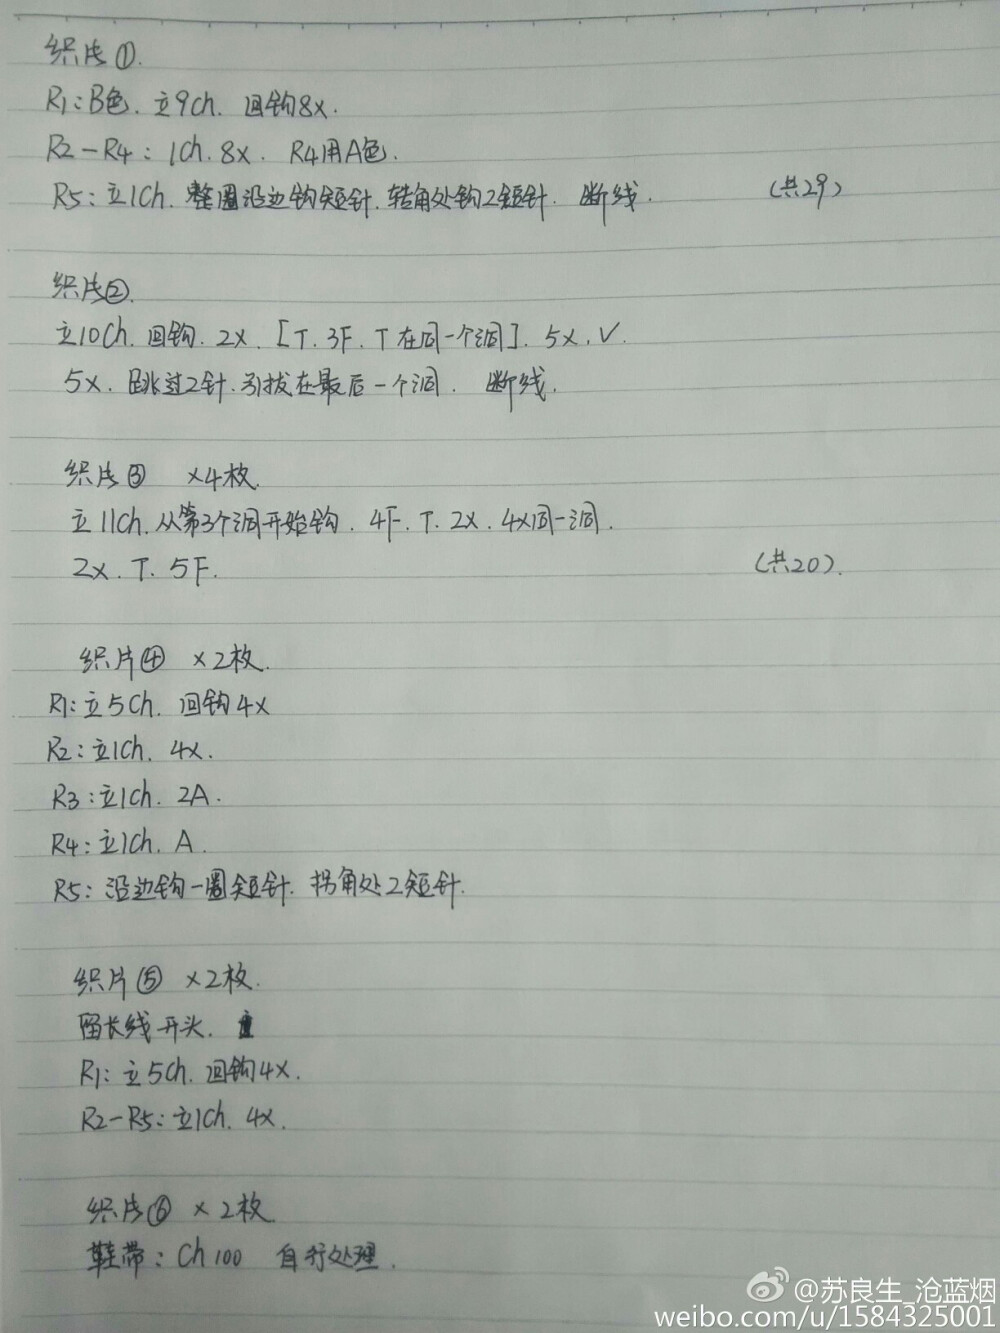 织片①.
R1:B色.立9ch.回钩8x.
R2-R4:1ch.8x.R4用A色.
R5:立1ch.整圈沿边钩短针.转角处钩2短针.断线.(共29)
织片②.
立10ch.回钩.2x.[T.3F.T在同一个洞].5x.V.
5x.跳过2针.引拔在最后一个洞.断线.
织片③ ×4枚.
立11ch.从第3个洞开始钩.4F.T.2x.4x同一洞.
2x.T.5F.(共20).
织片④ ×2枚.
R1:立5ch.回钩4x
R2:立1ch.4x.
R3:立1ch.2A.
R4:立1ch.A.
R5:沿边钩一圈短针.拐角处2短针.
织片⑤ ×2枚.
留长线开头.
R1:立5ch.回钩4x.
R2-R5:立1ch.4x.
织片⑥ ×2枚
鞋带:Ch100 自行处理.
@苏良生_沧蓝烟
weibo.com/u/1584325001